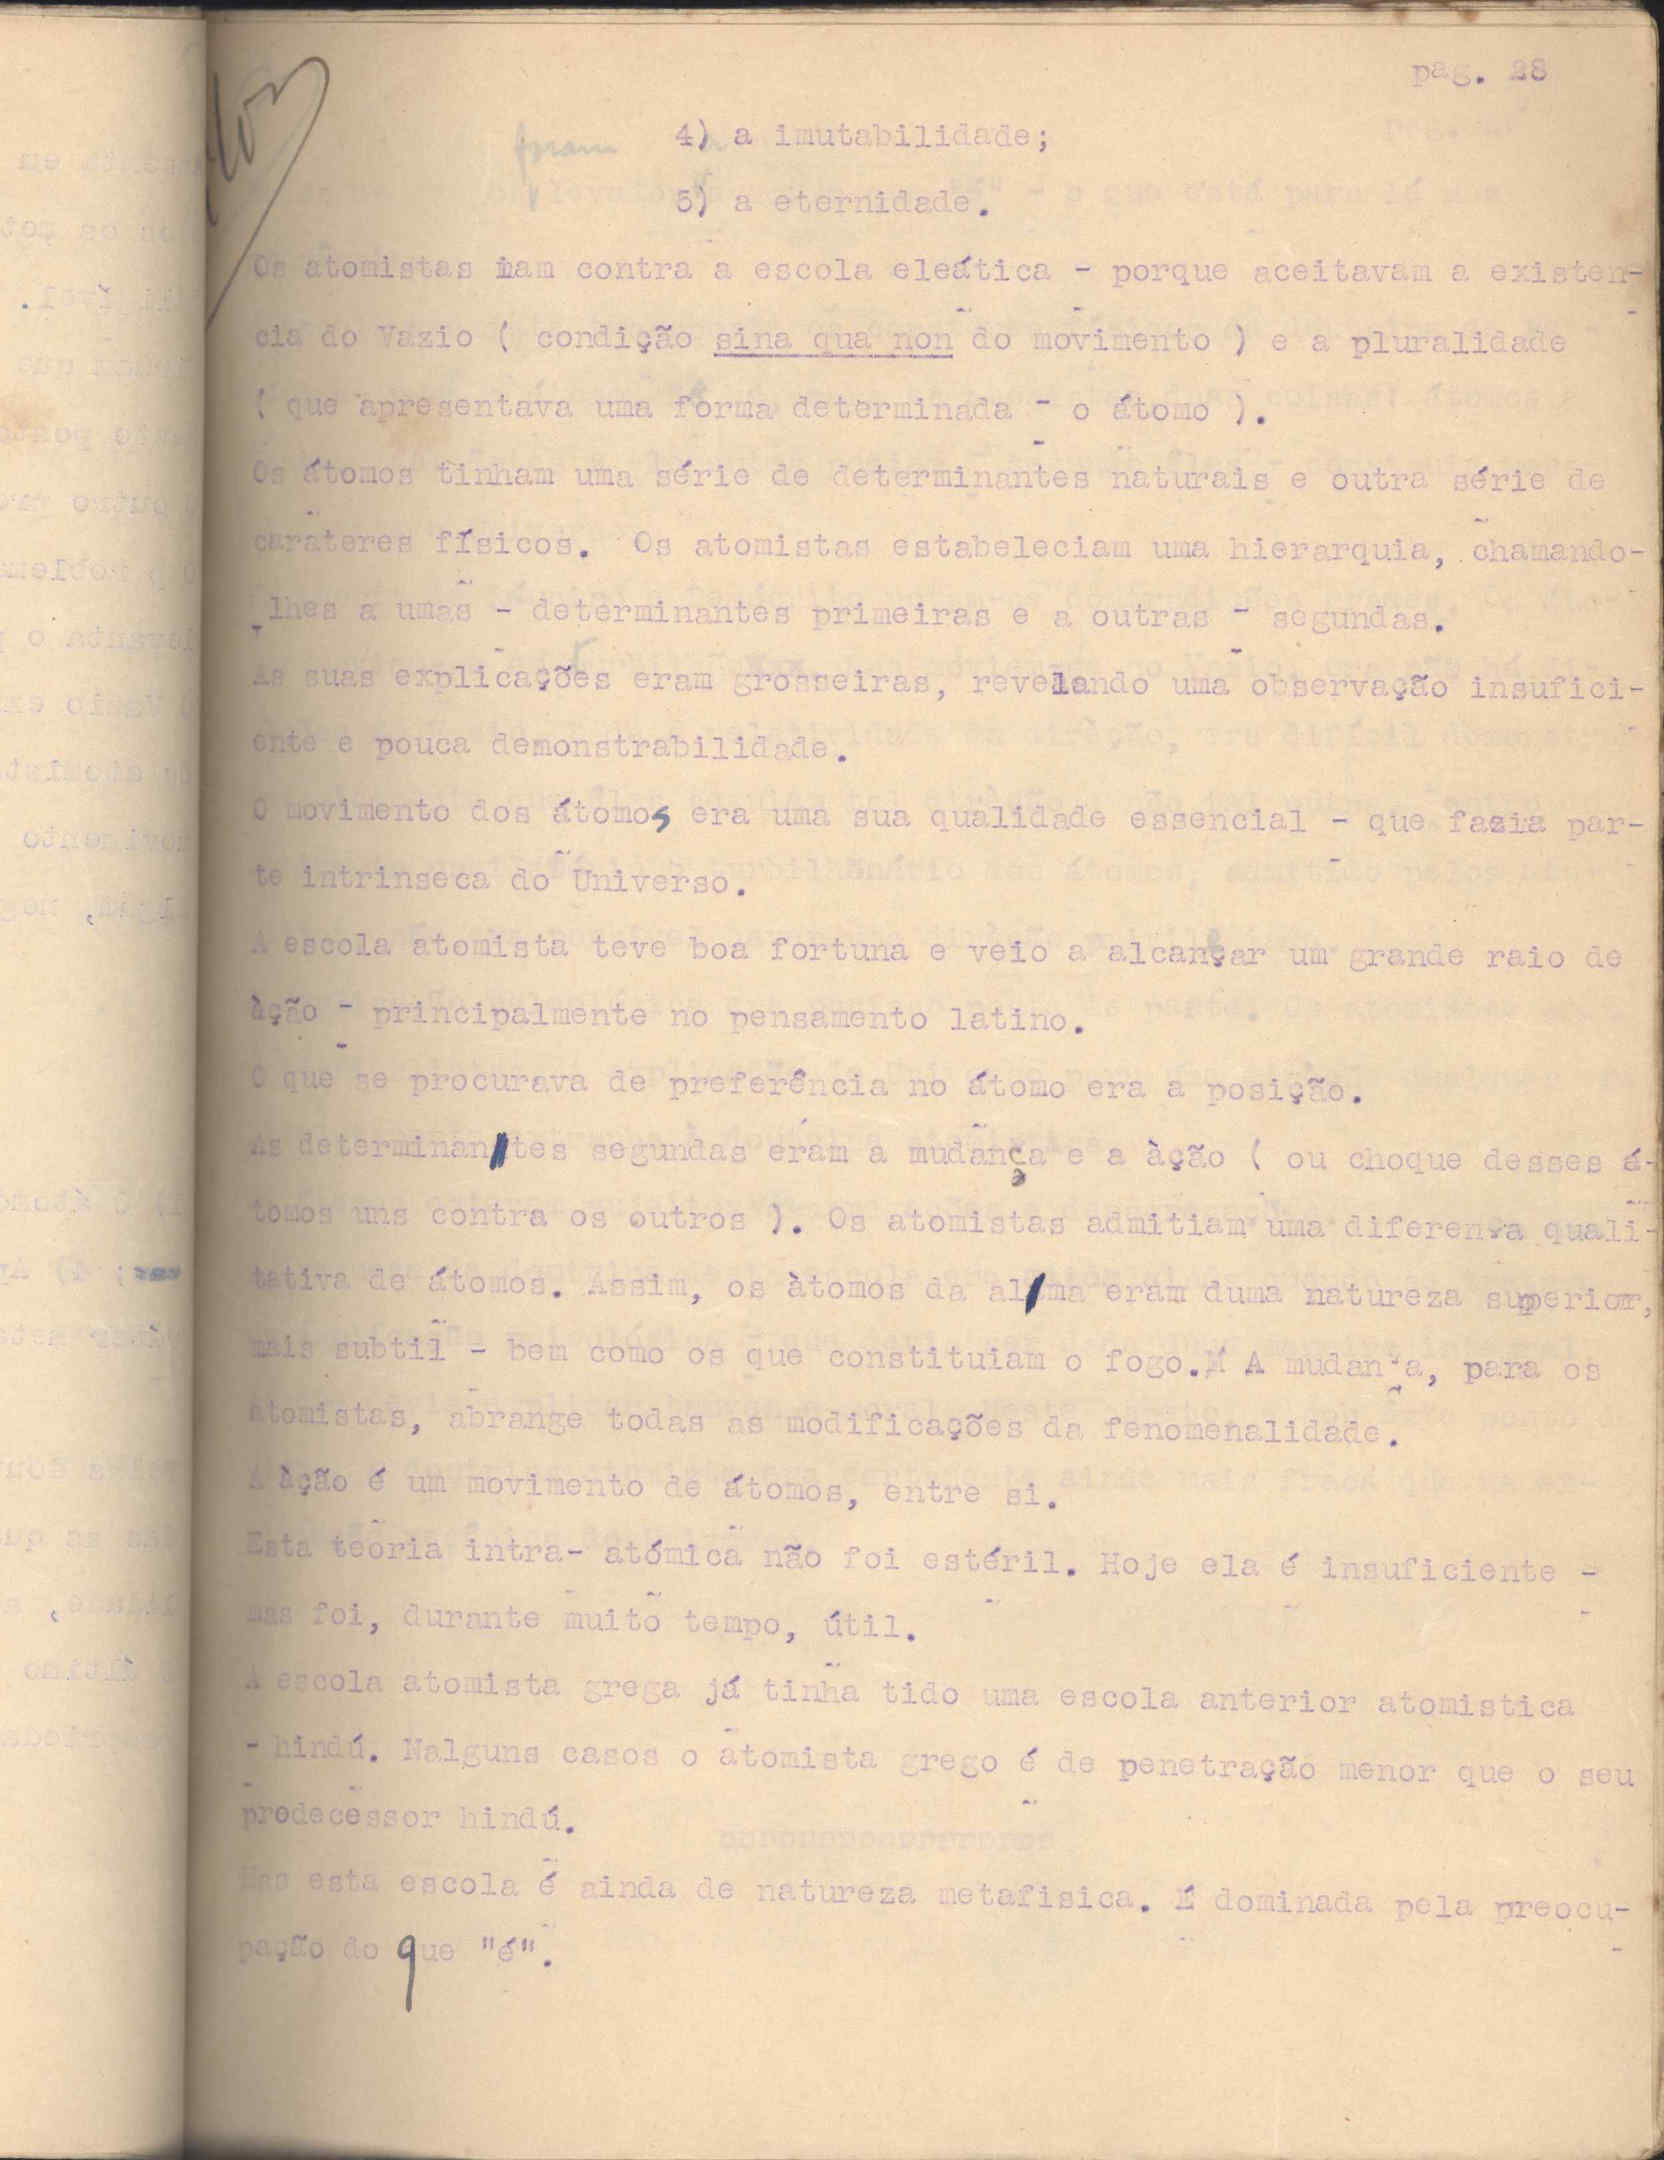 pag. 28
4) a imutabilidade;
5) a eternidade.
Os atomistas iam contra a escola eleática - porque aceitavam a existen-
cia do Vazio ( condição sina qua non do movimento ) e a pluralidade
( que apresentava uma forma determinada - o átomo ).
Os átomos tinham uma série de determinantes naturais e outra série de
caráteres físicos. Os atomistas estabeleciam uma hierarquia, chamando-
lhes a umas - determinantes primeiras e a outras - segundas.
As suas explicações eram grosseiras, revelando uma observação insufici-
ente e pouca demonstrabilidade.
O movimento dos átomos era uma sua qualidade essencial - que fazia par-
te intrinseca do Universo.
A escola atomista teve boa fortuna e veio a alcançar um grande raio de
àção - principalmente no pensamento latino.
O que se procurava de preferência no átomo era a posição.
As determinantes segundas eram a mudança e a àção ( ou choque desses á-
tomos uns contra os outros ). Os atomistas admitiam uma diferença quali-
tativa de átomos. Assim, os àtomos da alma eram duma natureza superior,
mais subtil - bem como os que constituiam o fogo. A mudança, para os
atomistas, abrange todas as modificações da fenomenalidade.
A àção é um movimento de átomos, entre si.
Esta teoria intra- atómica não foi estéril. Hoje ela é insuficiente -
mas foi, durante muito tempo, útil.
A escola atomista grega já tinha tido uma escola anterior atomistica
- hindú. Nalguns casos o atomista grego é de penetração menor que o seu
predecessor hindú.
Mas esta escola é ainda de natureza metafisica. É dominada pela preocu-
pação do que "é".